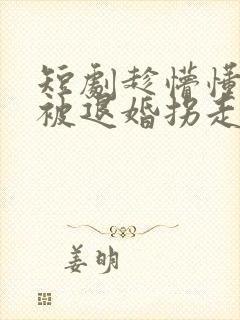 短劇趁懵懂
被退婚拐走
姜明